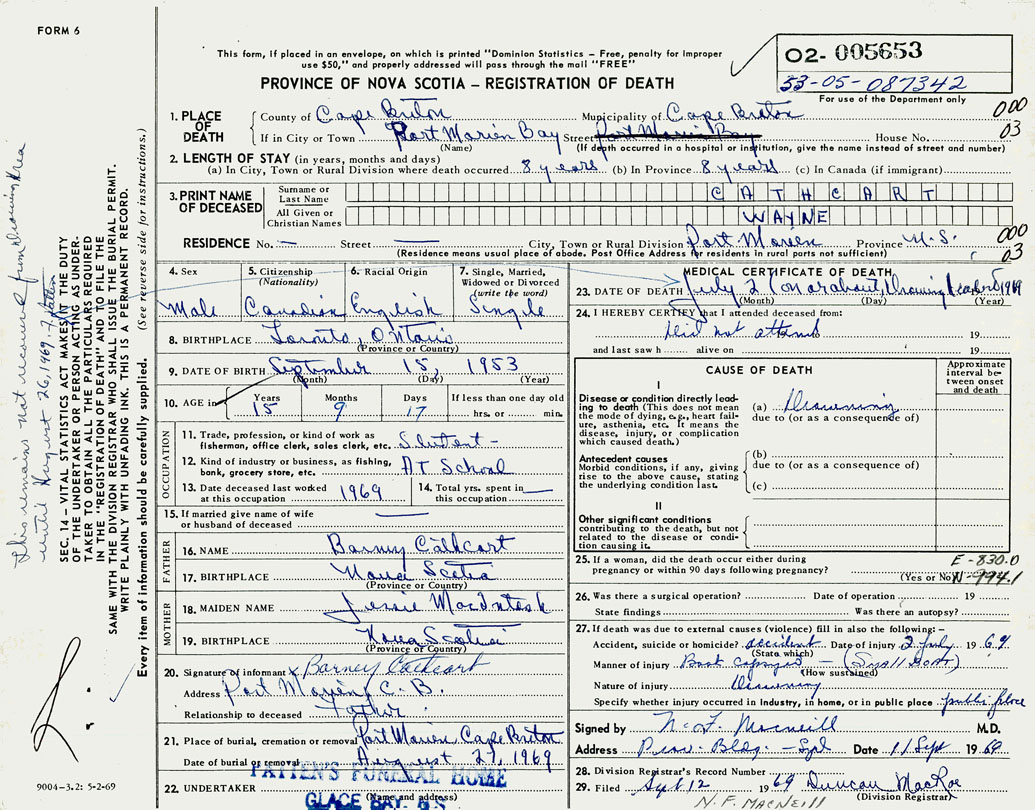 FORM 6
This form, if placed in an envelope, on which is printed "Dominion Statistics – Free, penalty for improper
use $50," and properly addressed will pass through the mail "FREE"
PROVINCE OF NOVA SCOTIA – REGISTRATION OF DEATH
02- 005653
53-05-087342
For use of the Department only
1. PLACE OF DEATH
County of Cape Breton Municipality of Cape Breton 000
If in City or Town Port Morien Bay Street Port Morien Bay House No. 03
(Name) (If death occurred in a hospital or institution, give the name instead of street and number)
2. LENGTH OF STAY (in years, months and days)
(a) In City, Town or Rural Division where death occurred 8 years (b) In Province 8 years (c) In Canada (if immigrant)
3. PRINT NAME OF DECEASED
Surname or Last Name CATHCART
All Given or Christian Names WAYNE
RESIDENCE No. — Street — City, Town or Rural Division Port Morien Province N.S. 000 03
(Residence means usual place of abode. Post Office Address for residents in rural parts not sufficient)
4. Sex
Male
5. Citizenship (Nationality)
Canadian
6. Racial Origin
English
7. Single, Married, Widowed or Divorced (write the word)
Single
8. BIRTHPLACE Toronto, Ontario
(Province or Country)
9. DATE OF BIRTH September 15, 1953
(Month) (Day) (Year)
10. AGE in Years Months Days If less than one day old
15 9 17 hrs. or min.
OCCUPATION
11. Trade, profession, or kind of work as fisherman, office clerk, sales clerk, etc. Student -
12. Kind of industry or business, as fishing, bank, grocery store, etc. At School
13. Date deceased last worked at this occupation 1969
14. Total yrs. spent in this occupation —
15. If married give name of wife or husband of deceased —
FATHER
16. NAME Barney Cathcart
17. BIRTHPLACE Nova Scotia
(Province or Country)
MOTHER
18. MAIDEN NAME Jessie MacIntosh
19. BIRTHPLACE Nova Scotia
(Province or Country)
20. Signature of informant x Barney Cathcart
Address Port Morien, C.B.
Relationship to deceased Father
21. Place of burial, cremation or removal Port Morien Cape Breton
Date of burial or removal August 27, 1969
22. UNDERTAKER PATTEN'S FUNERAL HOME
(Name and address)
GLACE BAY, N.S.
MEDICAL CERTIFICATE OF DEATH
23. DATE OF DEATH July 2 (on or about) Drowning 1969
(Month) (Day) (Year)
24. I HEREBY CERTIFY that I attended deceased from:
Did not attend 19
and last saw h alive on 19
CAUSE OF DEATH
Approximate interval between onset and death
I
Disease or condition directly leading to death (This does not mean the mode of dying, e.g., heart failure, asthenia, etc. It means the disease, injury, or complication which caused death.)
(a) Drowning
due to (or as a consequence of)
Antecedent causes
Morbid conditions, if any, giving rise to the above cause, stating the underlying condition last.
(b)
due to (or as a consequence of)
(c)
II
Other significant conditions contributing to the death, but not related to the disease or condition causing it.
25. If a woman, did the death occur either during pregnancy or within 90 days following pregnancy? (Yes or No)
E-830.0
N-994.1
26. Was there a surgical operation? Date of operation 19
State findings Was there an autopsy?
27. If death was due to external causes (violence) fill in also the following: –
Accident, suicide or homicide? accident Date of injury 2 July 1969
(State which)
Manner of injury Boat capsized – (Small Boat)
(How sustained)
Nature of injury Drowning
Specify whether injury occurred in industry, in home, or in public place public place
Signed by N. F. Macneill M.D.
Address Prov. Bldg. – Syd Date 11 Sept 1969
28. Division Registrar's Record Number
29. Filed Sept 12 1969 Duncan MacRae
(Division Registrar)
N. F. MACNEILL
This remains not recovered from drowning area
until August 26, 1969. F. Patten
SEC. 14 – VITAL STATISTICS ACT MAKES IT THE DUTY
OF THE UNDERTAKER OR PERSON ACTING AS UNDER-
TAKER TO OBTAIN ALL THE PARTICULARS REQUIRED
IN THE "REGISTRATION OF DEATH" AND TO FILE THE
SAME WITH THE DIVISION REGISTRAR WHO SHALL ISSUE THE BURIAL PERMIT.
WRITE PLAINLY WITH UNFADING INK. THIS IS A PERMANENT RECORD.
Every item of information should be carefully supplied. (See reverse side for instructions.)
9004–3.2: 5-2-69